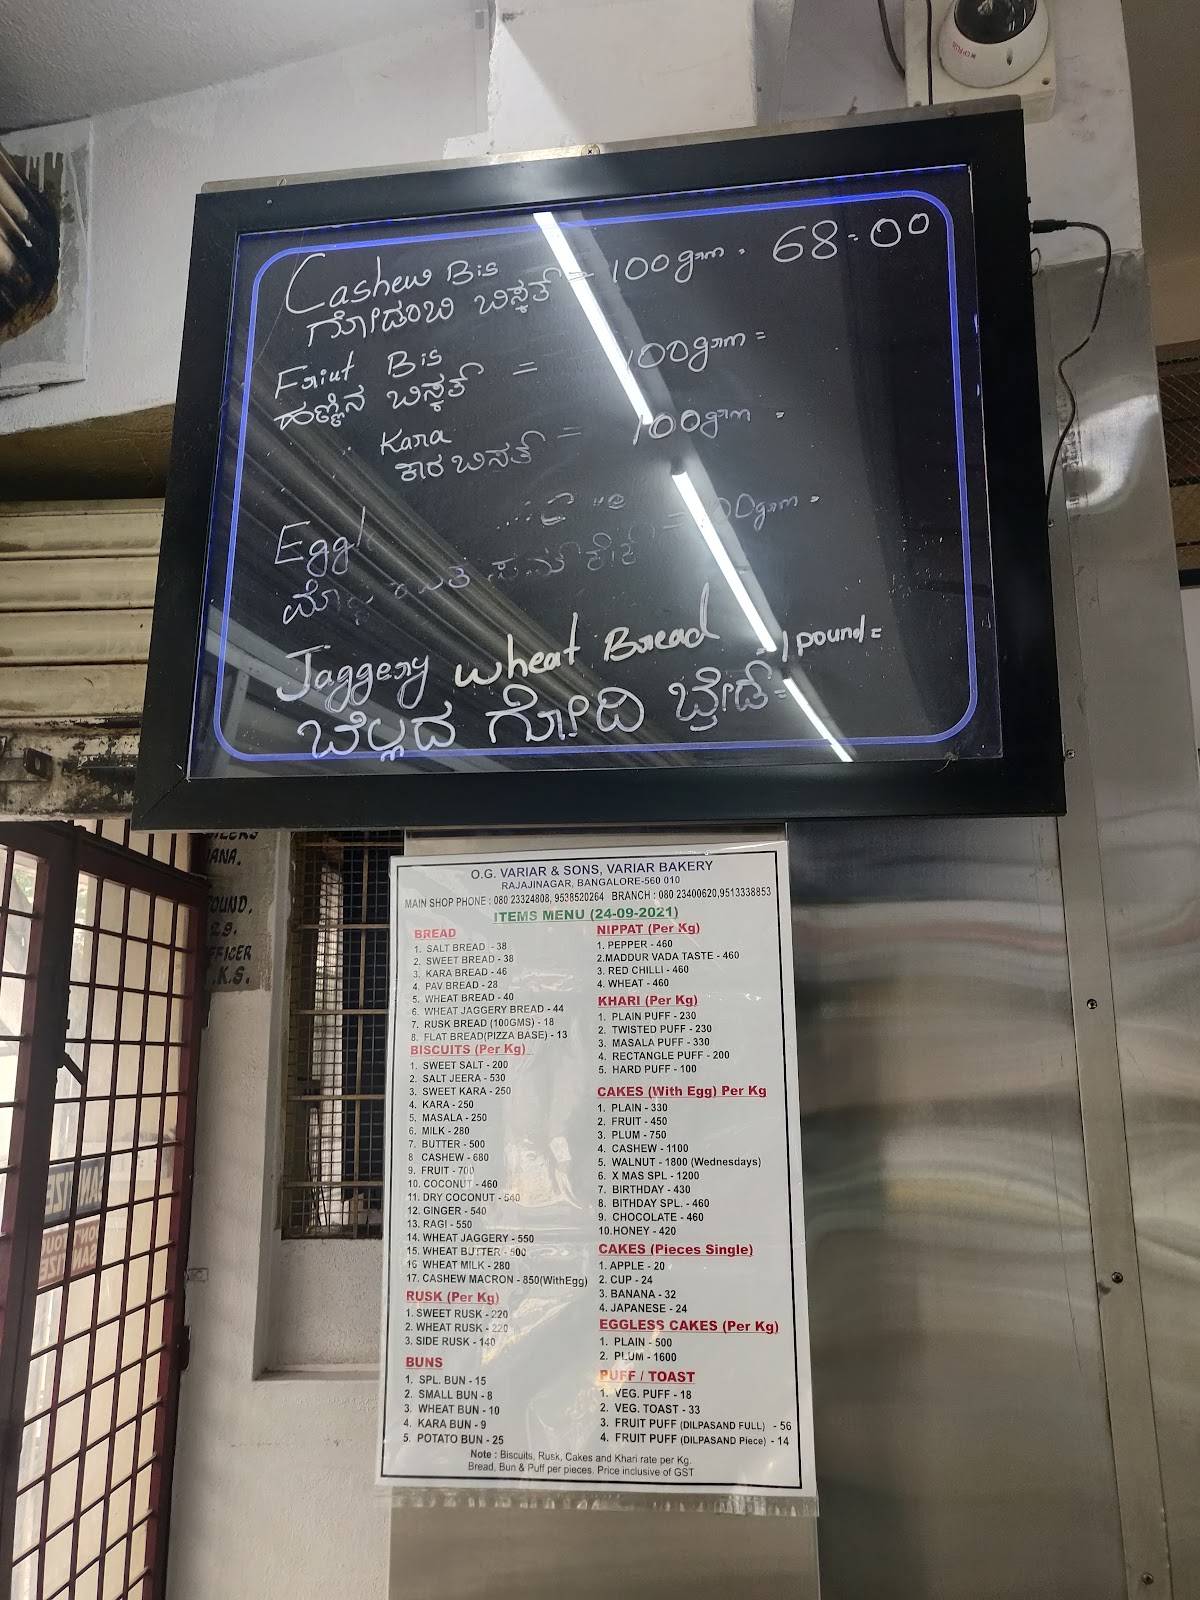 Cashew Bis = 100gm. 68=00
ಗೋಡಂಬಿ ಬಿಸ್ಕತ್
Friut Bis = 100gm=
ಹಣ್ಣಿನ ಬಿಸ್ಕತ್
Kara = 100gm =
ಕಾರ ಬಿಸತ್
= 00gm=
Jaggery wheat Bread = 1 pound=
ಬೆಲ್ಲದ ಗೋದಿ ಬ್ರೇಡ್=
ANA.
OUND.
29.
FFICER
.K.S.
O.G. VARIAR & SONS, VARIAR BAKERY
RAJAJINAGAR, BANGALORE-560 010
MAIN SHOP PHONE : 080 23324808, 9538520264 BRANCH : 080 23400620,9513338853
ITEMS MENU (24-09-2021)
BREAD
1. SALT BREAD - 38
2. SWEET BREAD - 38
3. KARA BREAD - 46
4. PAV BREAD - 28
5. WHEAT BREAD - 40
6. WHEAT JAGGERY BREAD - 44
7. RUSK BREAD (100GMS) - 18
8. FLAT BREAD(PIZZA BASE) - 13
BISCUITS (Per Kg)
1. SWEET SALT - 200
2. SALT JEERA - 530
3. SWEET KARA - 250
4. KARA - 250
5. MASALA - 250
6. MILK - 280
7. BUTTER - 500
8 CASHEW - 680
9. FRUIT - 700
10. COCONUT - 460
11. DRY COCONUT - 540
12. GINGER - 540
13. RAGI - 550
14. WHEAT JAGGERY - 550
15. WHEAT BUTTER - 500
16 WHEAT MILK - 280
17. CASHEW MACRON - 850(WithEgg)
RUSK (Per Kg)
1. SWEET RUSK - 220
2. WHEAT RUSK - 220
3. SIDE RUSK - 140
BUNS
1. SPL. BUN - 15
2. SMALL BUN - 8
3. WHEAT BUN - 10
4. KARA BUN - 9
5. POTATO BUN - 25
NIPPAT (Per Kg)
1. PEPPER - 460
2.MADDUR VADA TASTE - 460
3. RED CHILLI - 460
4. WHEAT - 460
KHARI (Per Kg)
1. PLAIN PUFF - 230
2. TWISTED PUFF - 230
3. MASALA PUFF - 330
4. RECTANGLE PUFF - 200
5. HARD PUFF - 100
CAKES (With Egg) Per Kg
1. PLAIN - 330
2. FRUIT - 450
3. PLUM - 750
4. CASHEW - 1100
5. WALNUT - 1800 (Wednesdays)
6. X MAS SPL - 1200
7. BIRTHDAY - 430
8. BITHDAY SPL. - 460
9. CHOCOLATE - 460
10.HONEY - 420
CAKES (Pieces Single)
1. APPLE - 20
2. CUP - 24
3. BANANA - 32
4. JAPANESE - 24
EGGLESS CAKES (Per Kg)
1. PLAIN - 500
2. PLUM - 1600
PUFF / TOAST
1. VEG. PUFF - 18
2. VEG. TOAST - 33
3. FRUIT PUFF (DILPASAND FULL) - 56
4. FRUIT PUFF (DILPASAND Piece) - 14
Note : Biscuits, Rusk, Cakes and Khari rate per Kg.
Bread, Bun & Puff per pieces. Price inclusive of GST